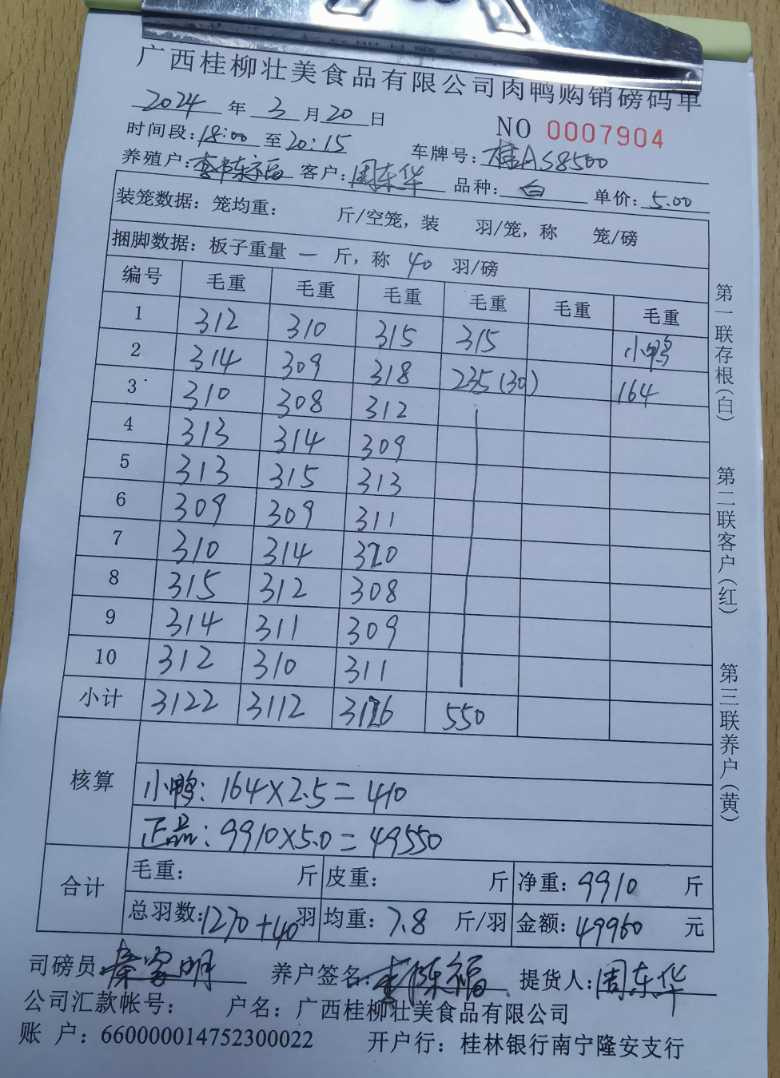 广西桂柳壮美食品有限公司肉鸭购销磅码单
2024 年 3 月 20 日 NO 0007904
时间段: 18:00 至 20:15 车牌号: 桂AS8500
养殖户: 客户: 周东华 品种: 白 单价: 5.00
装笼数据: 笼均重: 斤/空笼, 装 羽/笼, 称 笼/磅
捆脚数据: 板子重量 一 斤, 称 40 羽/磅
编号 毛重 毛重 毛重 毛重 毛重 毛重
1 312 310 315 315 小鸭
2 314 309 318 235(30) 164
3 310 308 312
4 313 314 309
5 313 315 313
6 309 309 311
7 310 314 320
8 315 312 308
9 314 311 309
10 312 310 311
小计 3122 3112 3126 550
核算
小鸭: 164×2.5=410
正品: 9910×5.0=49550
合计
毛重: 斤 皮重: 斤 净重: 9910 斤
总羽数: 1270+40 羽 均重: 7.8 斤/羽 金额: 49960 元
司磅员: 秦家明 养户签名: 提货人: 周东华
公司汇款帐号: 户名: 广西桂柳壮美食品有限公司
账 户: 660000014752300022 开户行: 桂林银行南宁隆安支行
第一联存根(白)
第二联客户(红)
第三联养户(黄)